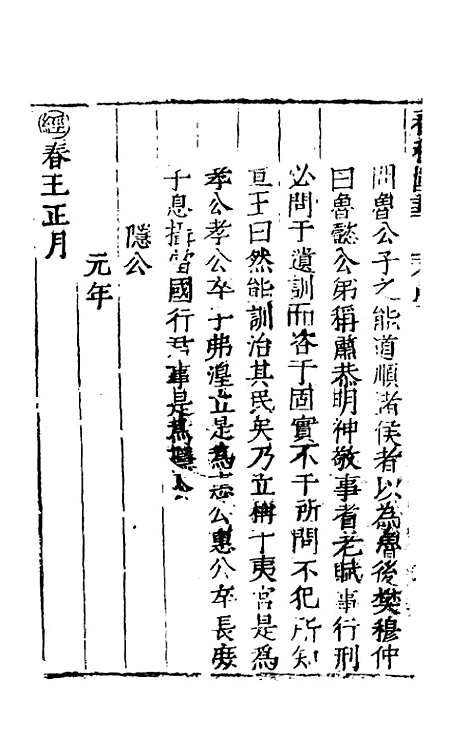 問魯公子之能道順諸侯者以為魯後樊穆仲
曰魯懿公弟稱肅恭明神敬事耆老賦事行刑
必問于遺訓而咨于固實不干所問不犯所知
宣王曰然能訓治其民矣乃立稱于夷宮是爲
孝公孝公卒子弗湟立是爲惠公惠公卒長庶
子息攝當國行君事是爲隱公
隱公
元年
經春王正月